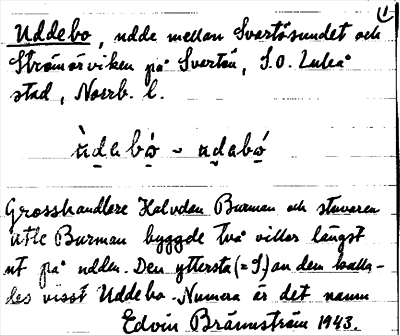 1
Uddebo, udde mellan Svartösundet och
Strömörviken på Svartön, S.O. Luleå
stad, Norrb. l.
ùdabó̱ - udabó̱
Grosshandlare Halvdan Burman och stuvaren
Atle Burman byggde två villor längst
ut på udden. Den yttersta (= S.) av dem kalla-
des visst Uddebo. Numera är det namn
Edvin Brännström 1943.